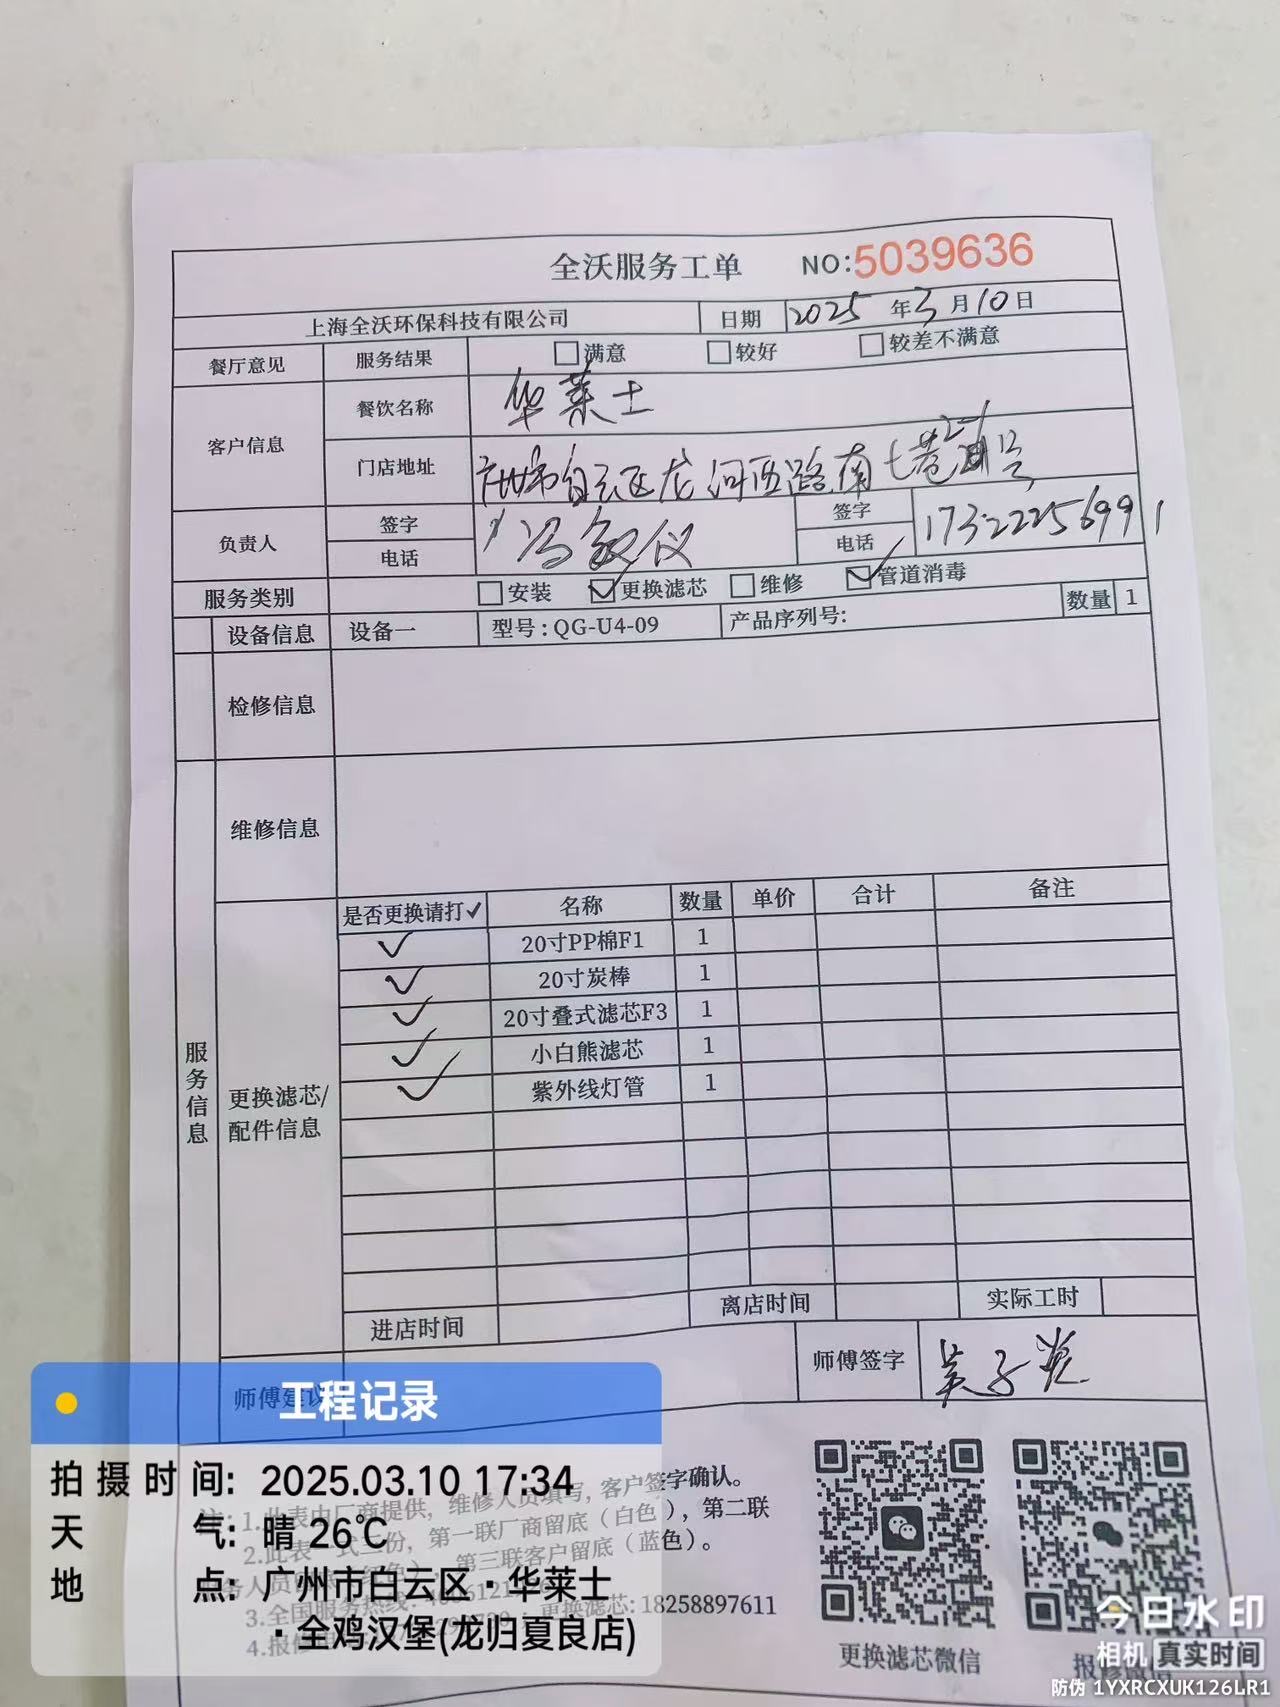 全沃服务工单 NO:5039636
上海全沃环保科技有限公司 日期 2025 年 3 月 10 日
餐厅意见 服务结果 □满意 □较好 □较差不满意
客户信息 餐饮名称 华莱士
门店地址 广州市白云区龙河西路南七巷 号
负责人 签字 冯敏仪 签字
电话 电话 17322256991
服务类别 □安装 ☑更换滤芯 □维修 ☑管道消毒
设备信息 设备一 型号:QG-U4-09 产品序列号: 数量 1
检修信息
维修信息
服务信息
更换滤芯/
配件信息
是否更换请打✓ 名称 数量 单价 合计 备注
✓ 20寸PP棉F1 1
✓ 20寸炭棒 1
✓ 20寸叠式滤芯F3 1
✓ 小白熊滤芯 1
✓ 紫外线灯管 1
进店时间 离店时间 实际工时
师傅建议 师傅签字
注:1.此表由厂商提供,维修人员填写,客户签字确认。
2.此表一式三份,第一联厂商留底(白色),第二联
务人员 第三联客户留底(蓝色)。
3.全国服务热线:
4.报修 更换滤芯:18258897611
更换滤芯微信 报修微信
工程记录
拍摄时间: 2025.03.10 17:34
天气: 晴 26℃
地点: 广州市白云区·华莱士
·全鸡汉堡(龙归夏良店)
今日水印
相机 真实时间
防伪 1YXRCXUK126LR1